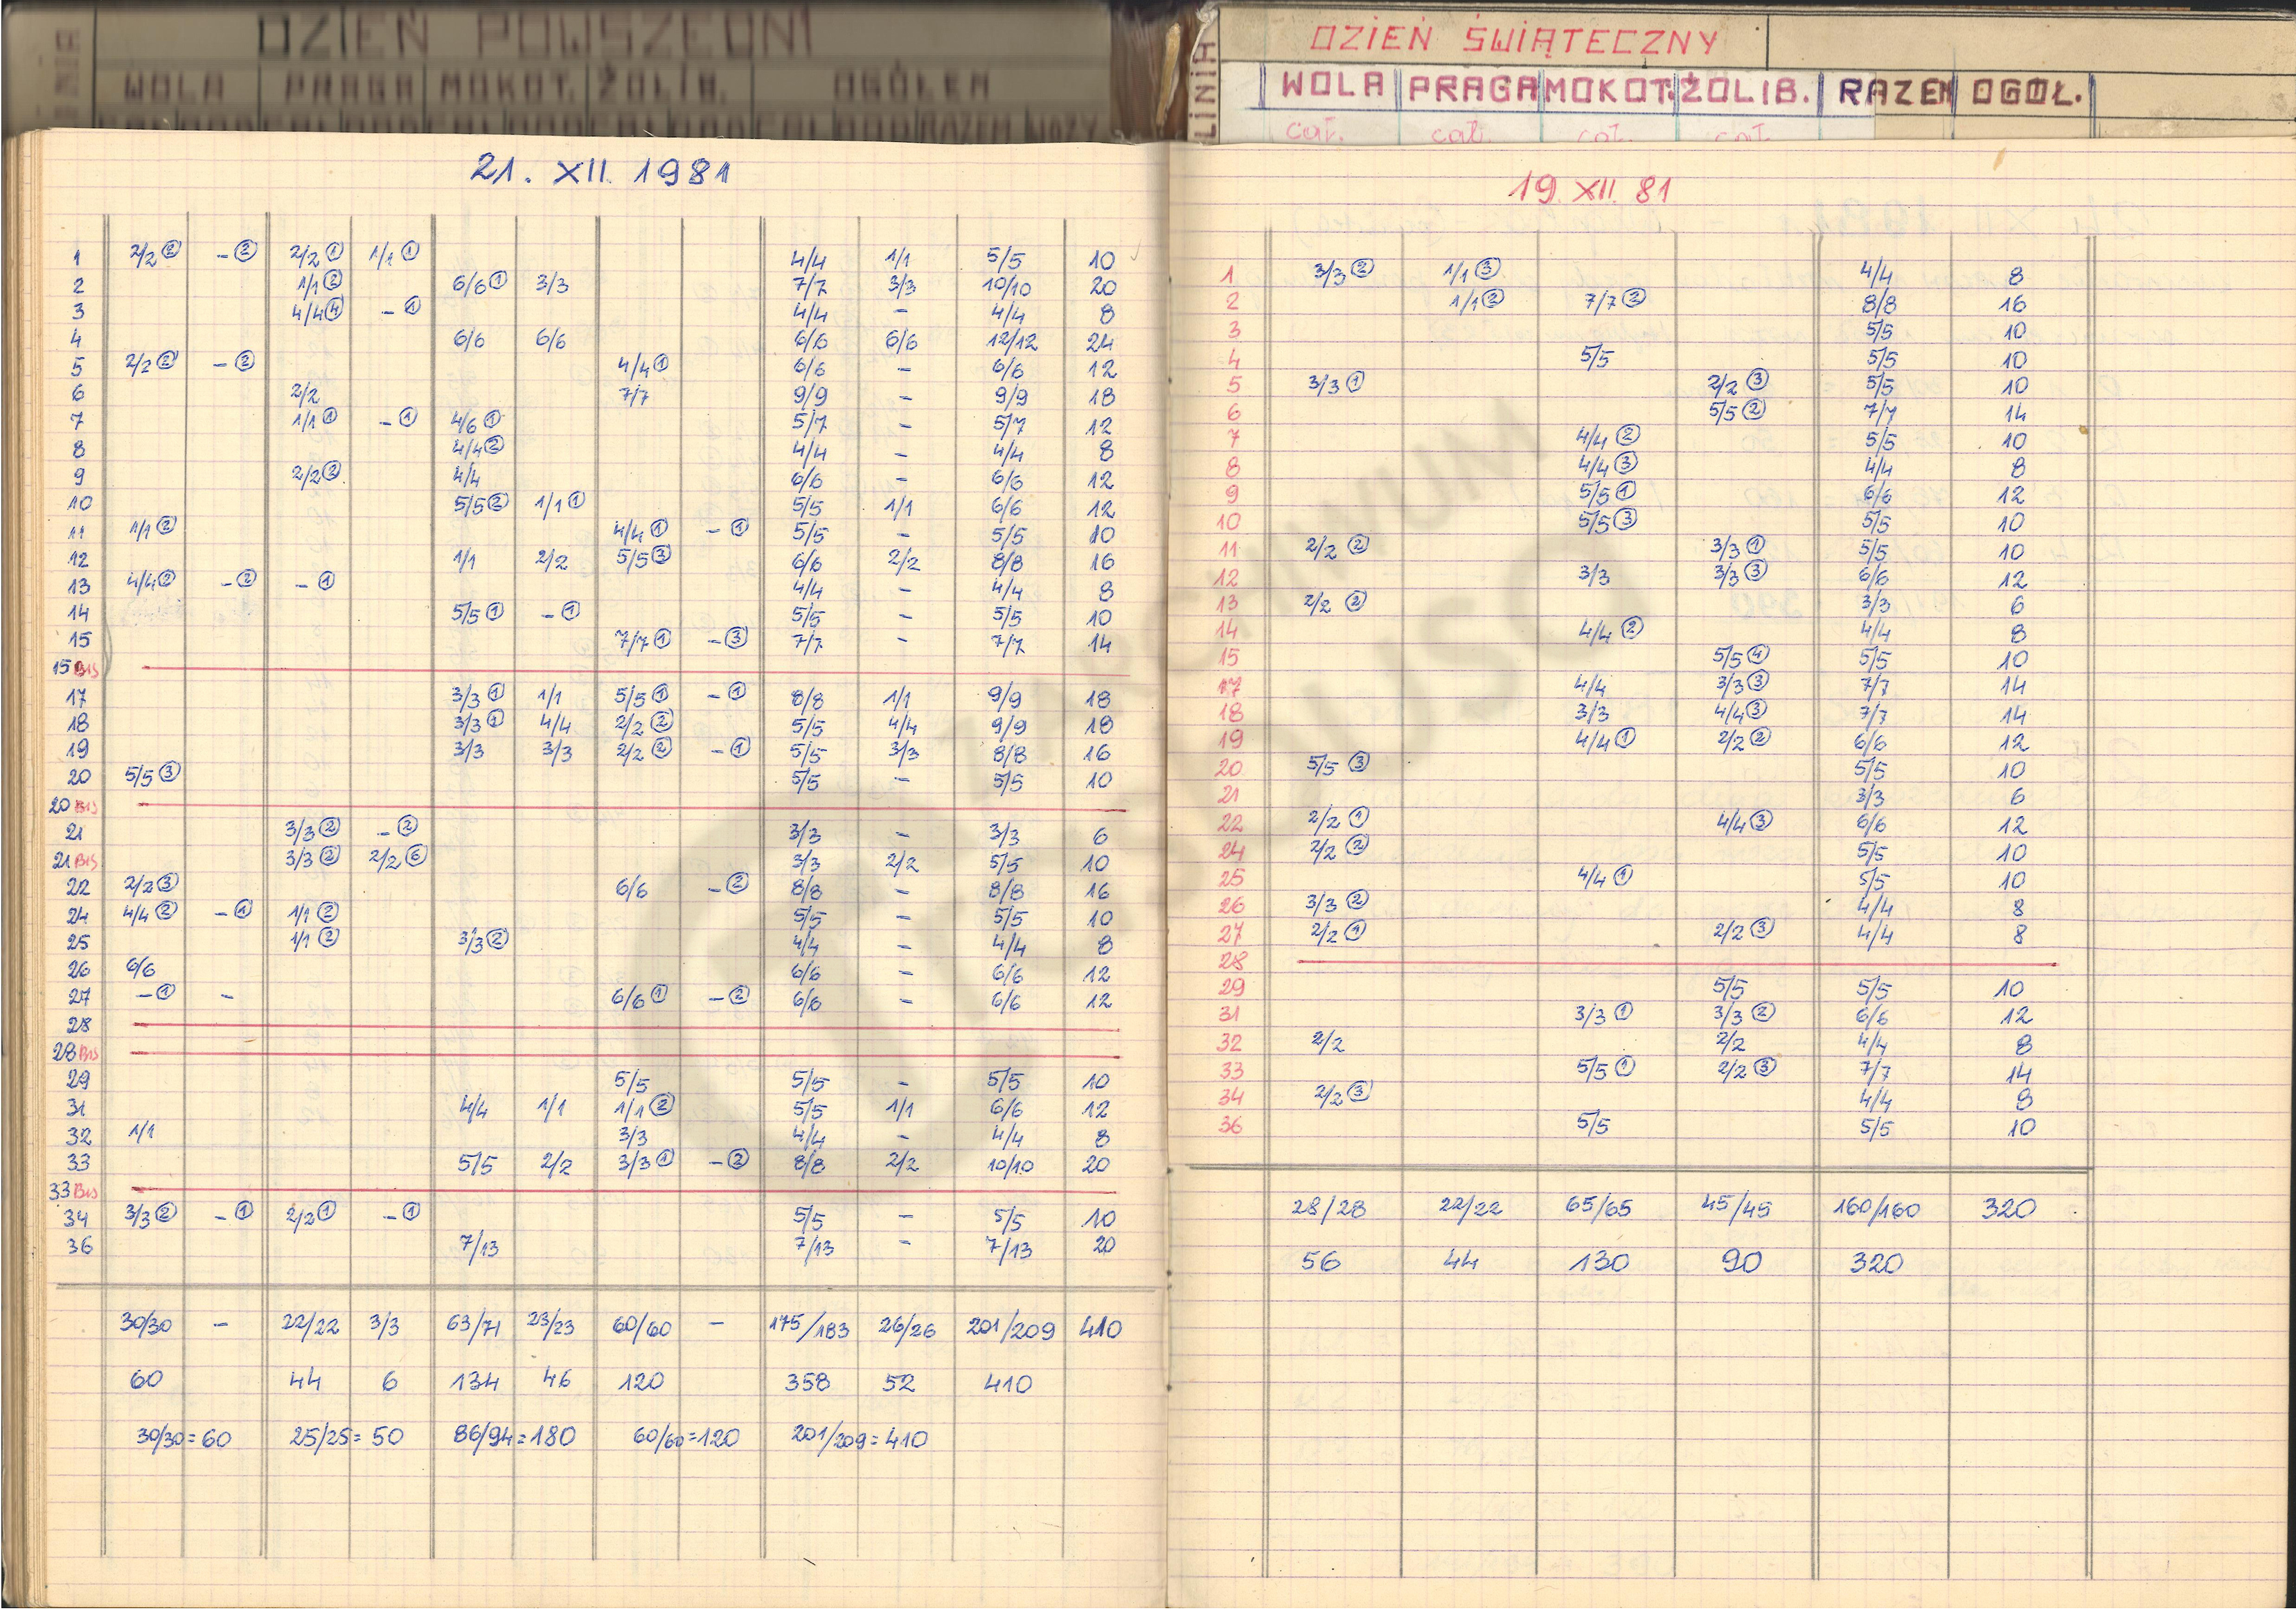 DZIEŃ POWSZEDNI
WOLA PRAGA MOKOT. ŻOLIB. OGÓŁEM
21. XII. 1981
1 2/2 ② – ② 2/2 ① 1/1 ① 4/4 1/1 5/5 10
2 1/1 ② 6/6 ① 3/3 7/7 3/3 10/10 20
3 4/4 ④ – ① 4/4 – 4/4 8
4 6/6 6/6 6/6 6/6 12/12 24
5 2/2 ② – ② 4/4 ① 6/6 – 6/6 12
6 2/2 7/7 9/9 – 9/9 18
7 1/1 ① – ① 4/6 ① 5/7 – 5/7 12
8 4/4 ② 4/4 – 4/4 8
9 2/2 ② 4/4 6/6 – 6/6 12
10 5/5 ② 1/1 ① 5/5 1/1 6/6 12
11 1/1 ② 4/4 ① – ① 5/5 – 5/5 10
12 1/1 2/2 5/5 ③ 6/6 2/2 8/8 16
13 4/4 ② – ② – ① 4/4 – 4/4 8
14 5/5 ① – ① 5/5 – 5/5 10
15 7/7 ① – ③ 7/7 – 7/7 14
15 BIS
17 3/3 ① 1/1 5/5 ① – ① 8/8 1/1 9/9 18
18 3/3 ① 4/4 2/2 ② 5/5 4/4 9/9 18
19 3/3 3/3 2/2 ② – ① 5/5 3/3 8/8 16
20 5/5 ③ 5/5 – 5/5 10
20 BIS
21 3/3 ② – ② 3/3 – 3/3 6
21 BIS 3/3 ② 2/2 ⑥ 3/3 2/2 5/5 10
22 2/2 ③ 6/6 – ② 8/8 – 8/8 16
24 4/4 ② – ① 1/1 ② 5/5 – 5/5 10
25 1/1 ② 3/3 ② 4/4 – 4/4 8
26 6/6 6/6 – 6/6 12
27 – ① – 6/6 ① – ② 6/6 – 6/6 12
28
28 BIS
29 5/5 5/5 – 5/5 10
31 4/4 1/1 1/1 ② 5/5 1/1 6/6 12
32 1/1 3/3 4/4 – 4/4 8
33 5/5 2/2 3/3 ① – ② 8/8 2/2 10/10 20
33 BIS
34 3/3 ② – ① 2/2 ① – ① 5/5 – 5/5 10
36 7/13 7/13 – 7/13 20
30/30 – 22/22 3/3 63/71 23/23 60/60 – 175/183 26/26 201/209 410
60 44 6 134 46 120 358 52 410
30/30=60 25/25=50 86/94=180 60/60=120 201/209=410
LINIA
DZIEŃ ŚWIĄTECZNY
WOLA PRAGA MOKOT. ŻOLIB. RAZEM OGÓŁ.
cał. cał. cał. cał.
19 XII. 81
1 3/3 ② 1/1 ③ 4/4 8
2 1/1 ② 7/7 ② 8/8 16
3 5/5 10
4 5/5 5/5 10
5 3/3 ① 2/2 ③ 5/5 10
6 5/5 ② 7/7 14
7 4/4 ② 5/5 10
8 4/4 ③ 4/4 8
9 5/5 ① 6/6 12
10 5/5 ③ 5/5 10
11 2/2 ② 3/3 ① 5/5 10
12 3/3 3/3 ③ 6/6 12
13 2/2 ② 3/3 6
14 4/4 ② 4/4 8
15 5/5 ④ 5/5 10
17 4/4 3/3 ③ 7/7 14
18 3/3 4/4 ③ 7/7 14
19 4/4 ① 2/2 ② 6/6 12
20 5/5 ③ 5/5 10
21 3/3 6
22 2/2 ① 4/4 ③ 6/6 12
24 2/2 ② 5/5 10
25 4/4 ① 5/5 10
26 3/3 ② 4/4 8
27 2/2 ① 2/2 ③ 4/4 8
28
29 5/5 5/5 10
31 3/3 ① 3/3 ② 6/6 12
32 2/2 2/2 4/4 8
33 5/5 ① 2/2 ③ 7/7 14
34 2/2 ③ 4/4 8
36 5/5 5/5 10
28/28 22/22 65/65 45/45 160/160 320
56 44 130 90 320